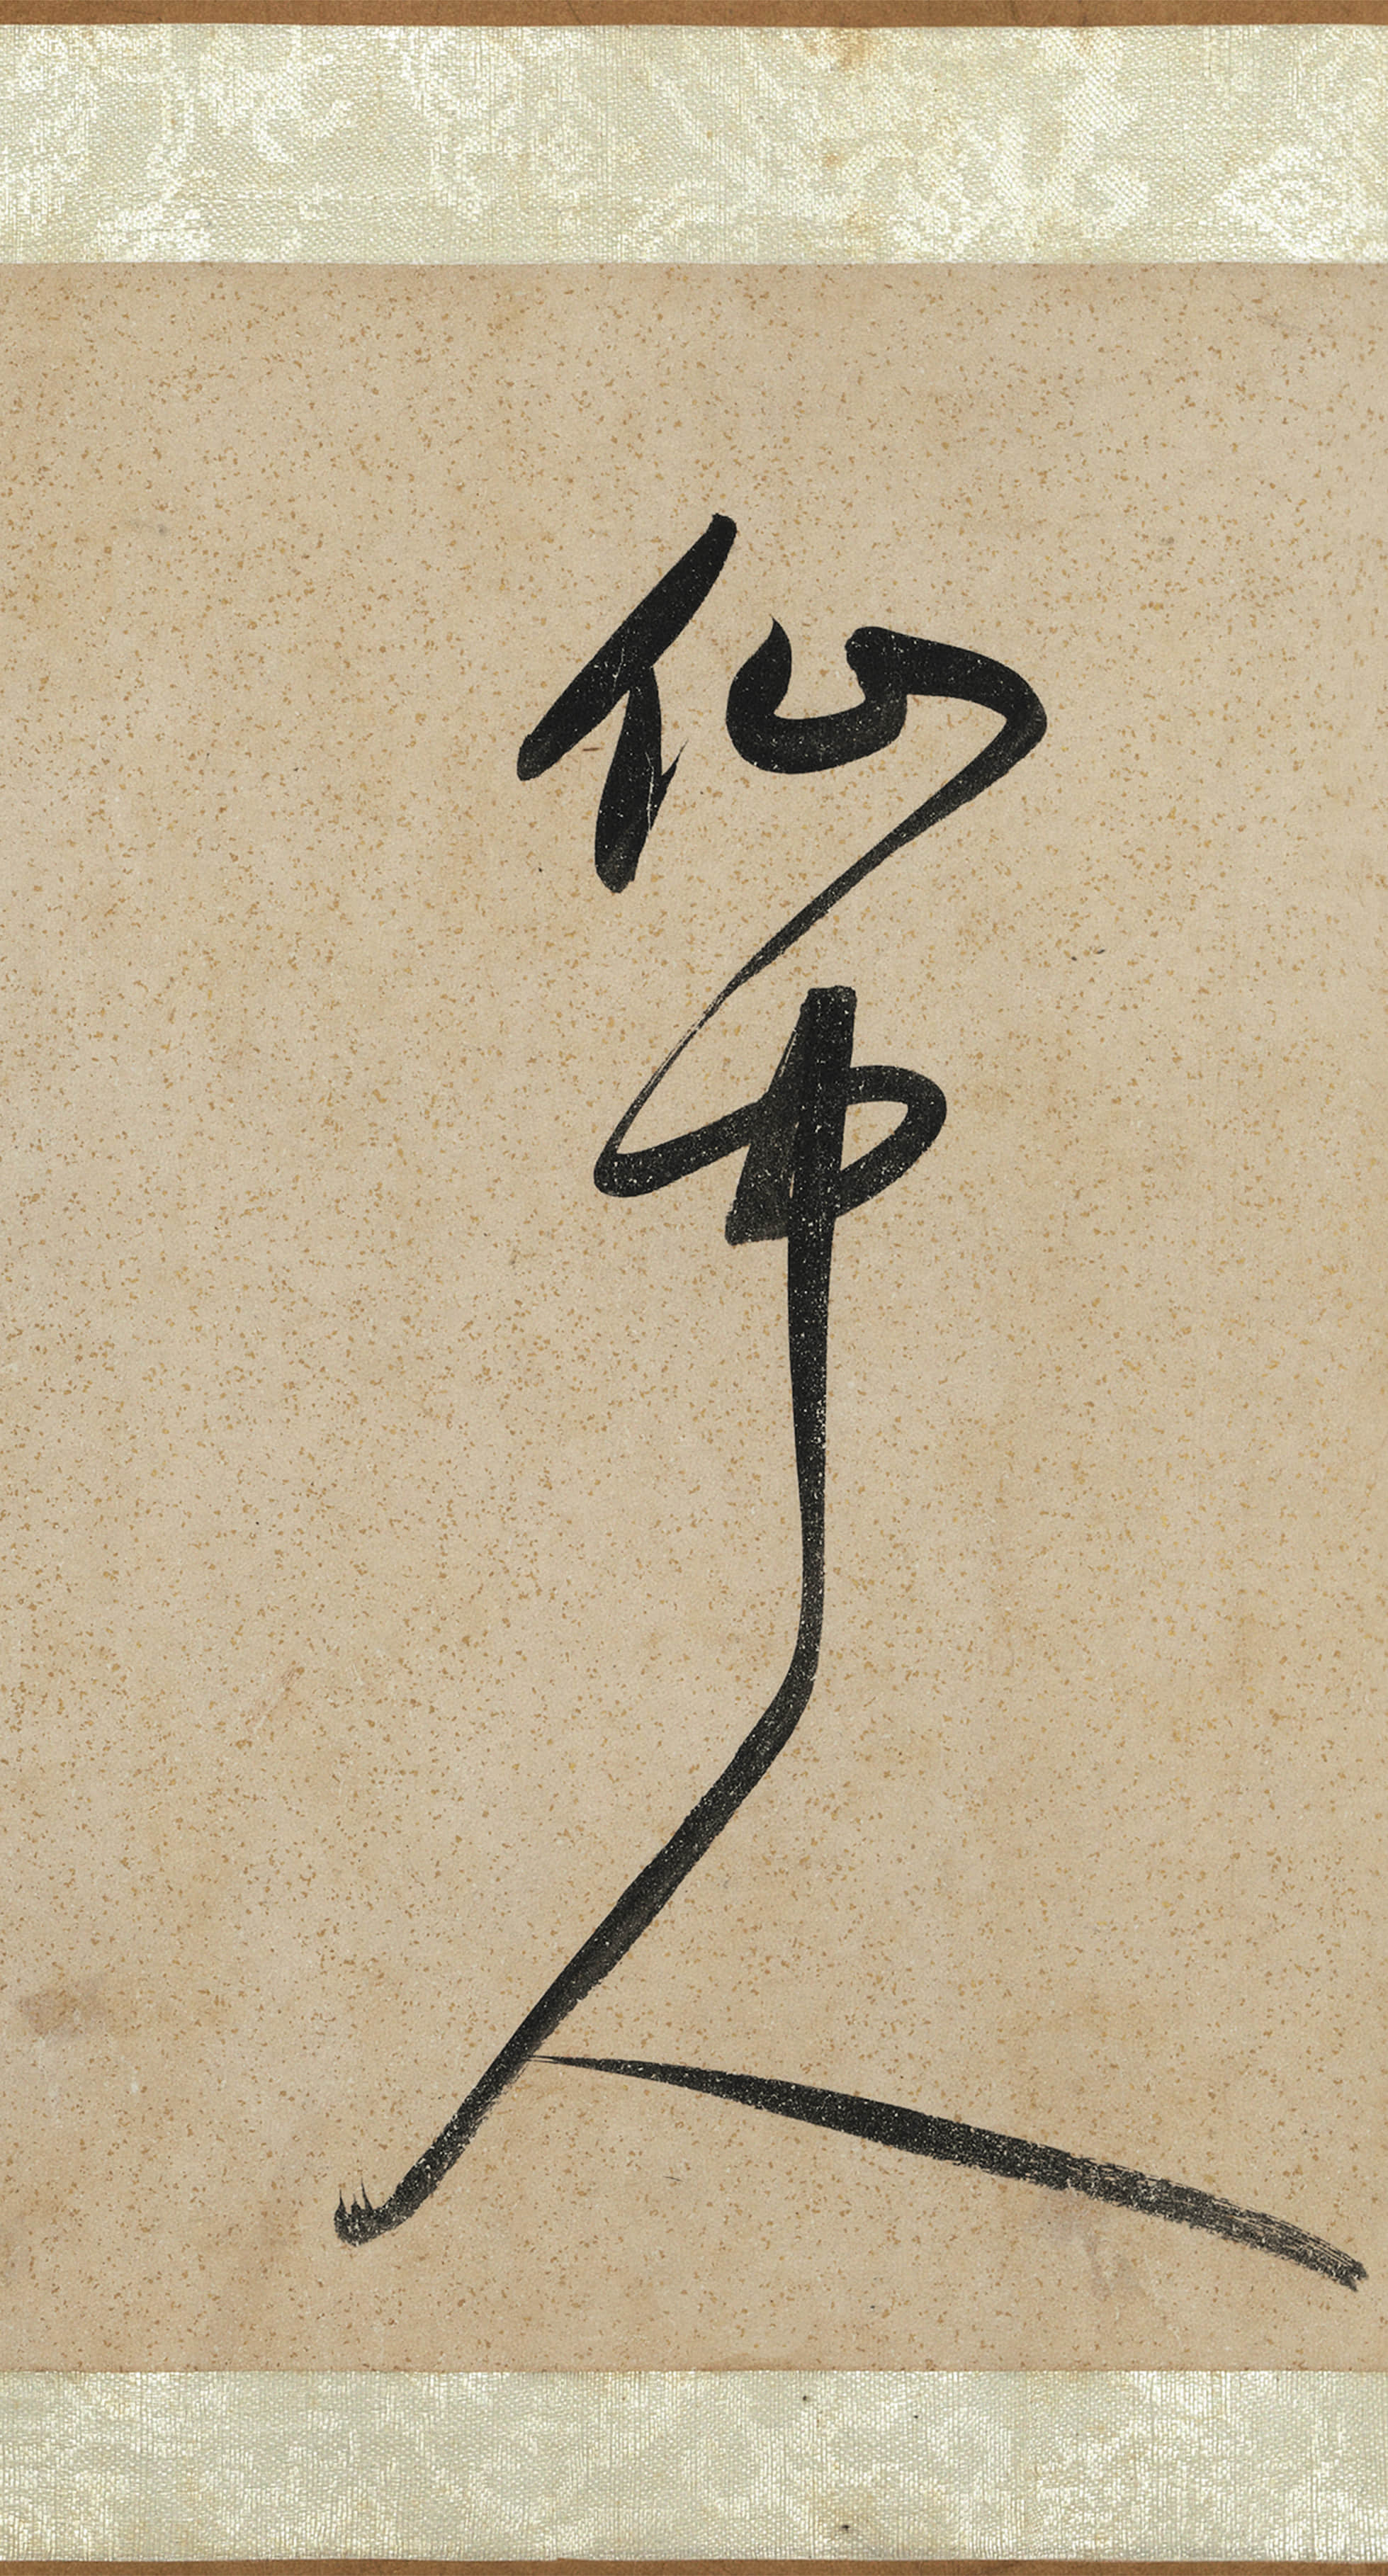 仙中人